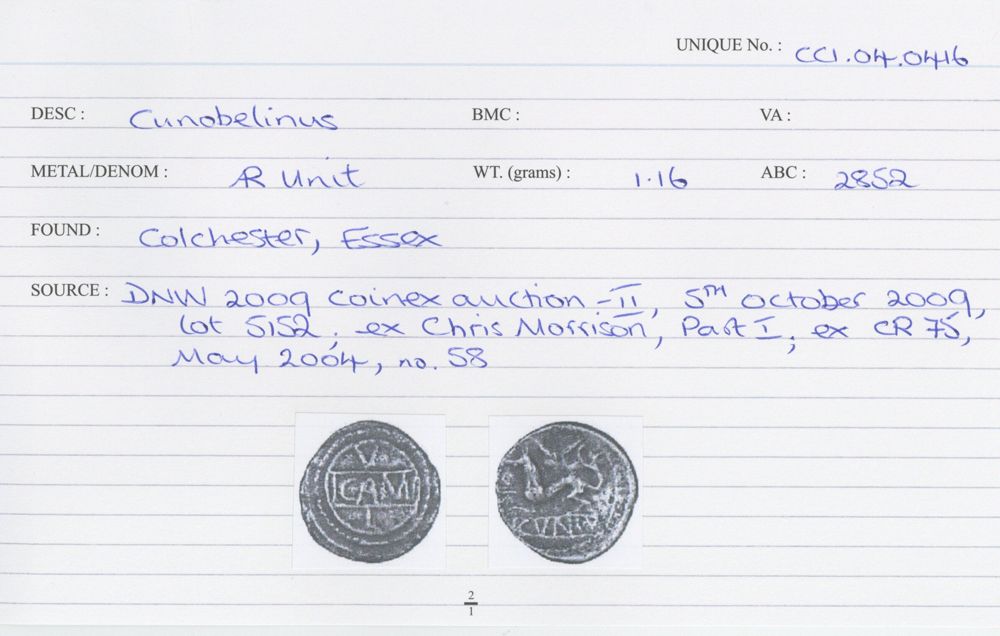 UNIQUE No. : CCI.04.0416
DESC : Cunobelinus BMC : VA :
METAL/DENOM : AR Unit WT. (grams) : 1.16 ABC : 2852
FOUND : Colchester, Essex
SOURCE : DNW 2009 Coinex auction - II, 5TH October 2009,
lot 5152, ex Chris Morrison, Part I, ex CR 75,
May 2004, no. 58
CAM
CVNI
2
1